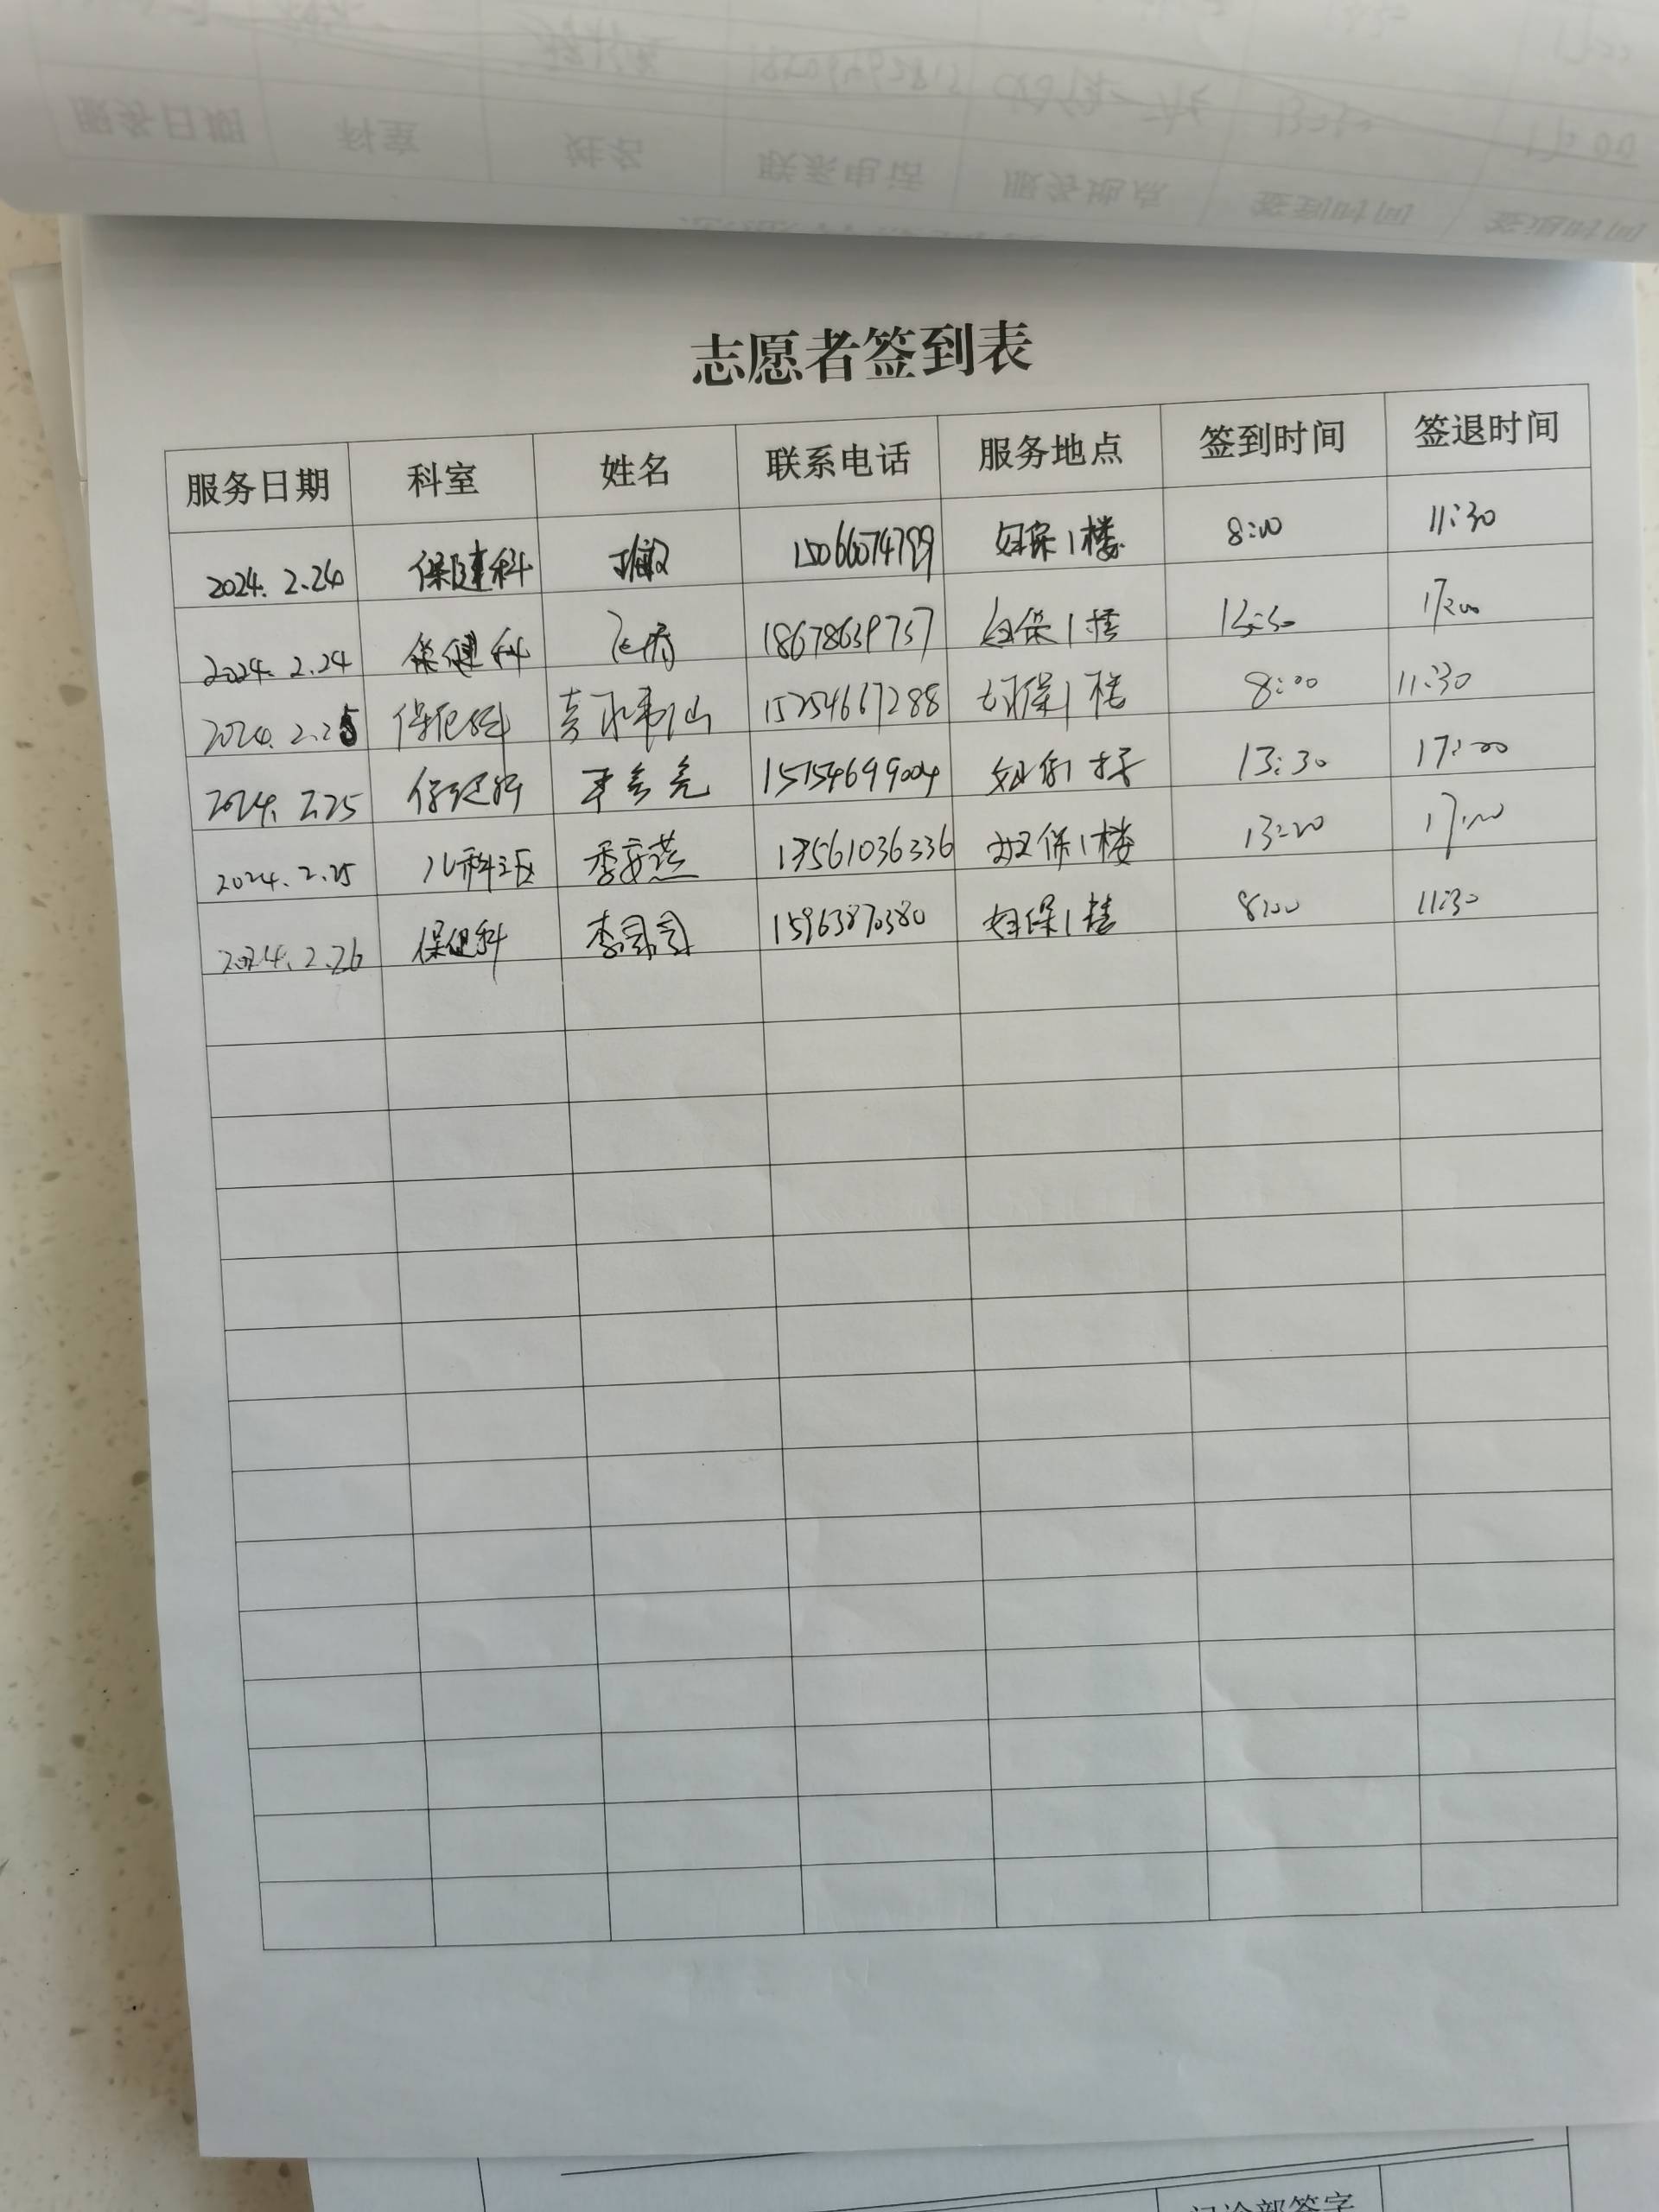 志愿者签到表
服务日期 科室 姓名 联系电话 服务地点 签到时间 签退时间
2024.2.24 保健科 15066074799 妇保1楼 8:00 11:30
2024.2.24 保健科 18678639737 妇保1楼 13:30 17:00
2024.2.25 保健科 15254667288 妇保1楼 8:00 11:30
2024.2.25 保健科 15154699004 妇保1楼 13:30 17:00
2024.2.25 儿科三区 季安燕 13561036336 妇保1楼 13:20 17:00
2024.2.26 保健科 李司司 15963870380 妇保1楼 8:00 11:30
门诊部签字